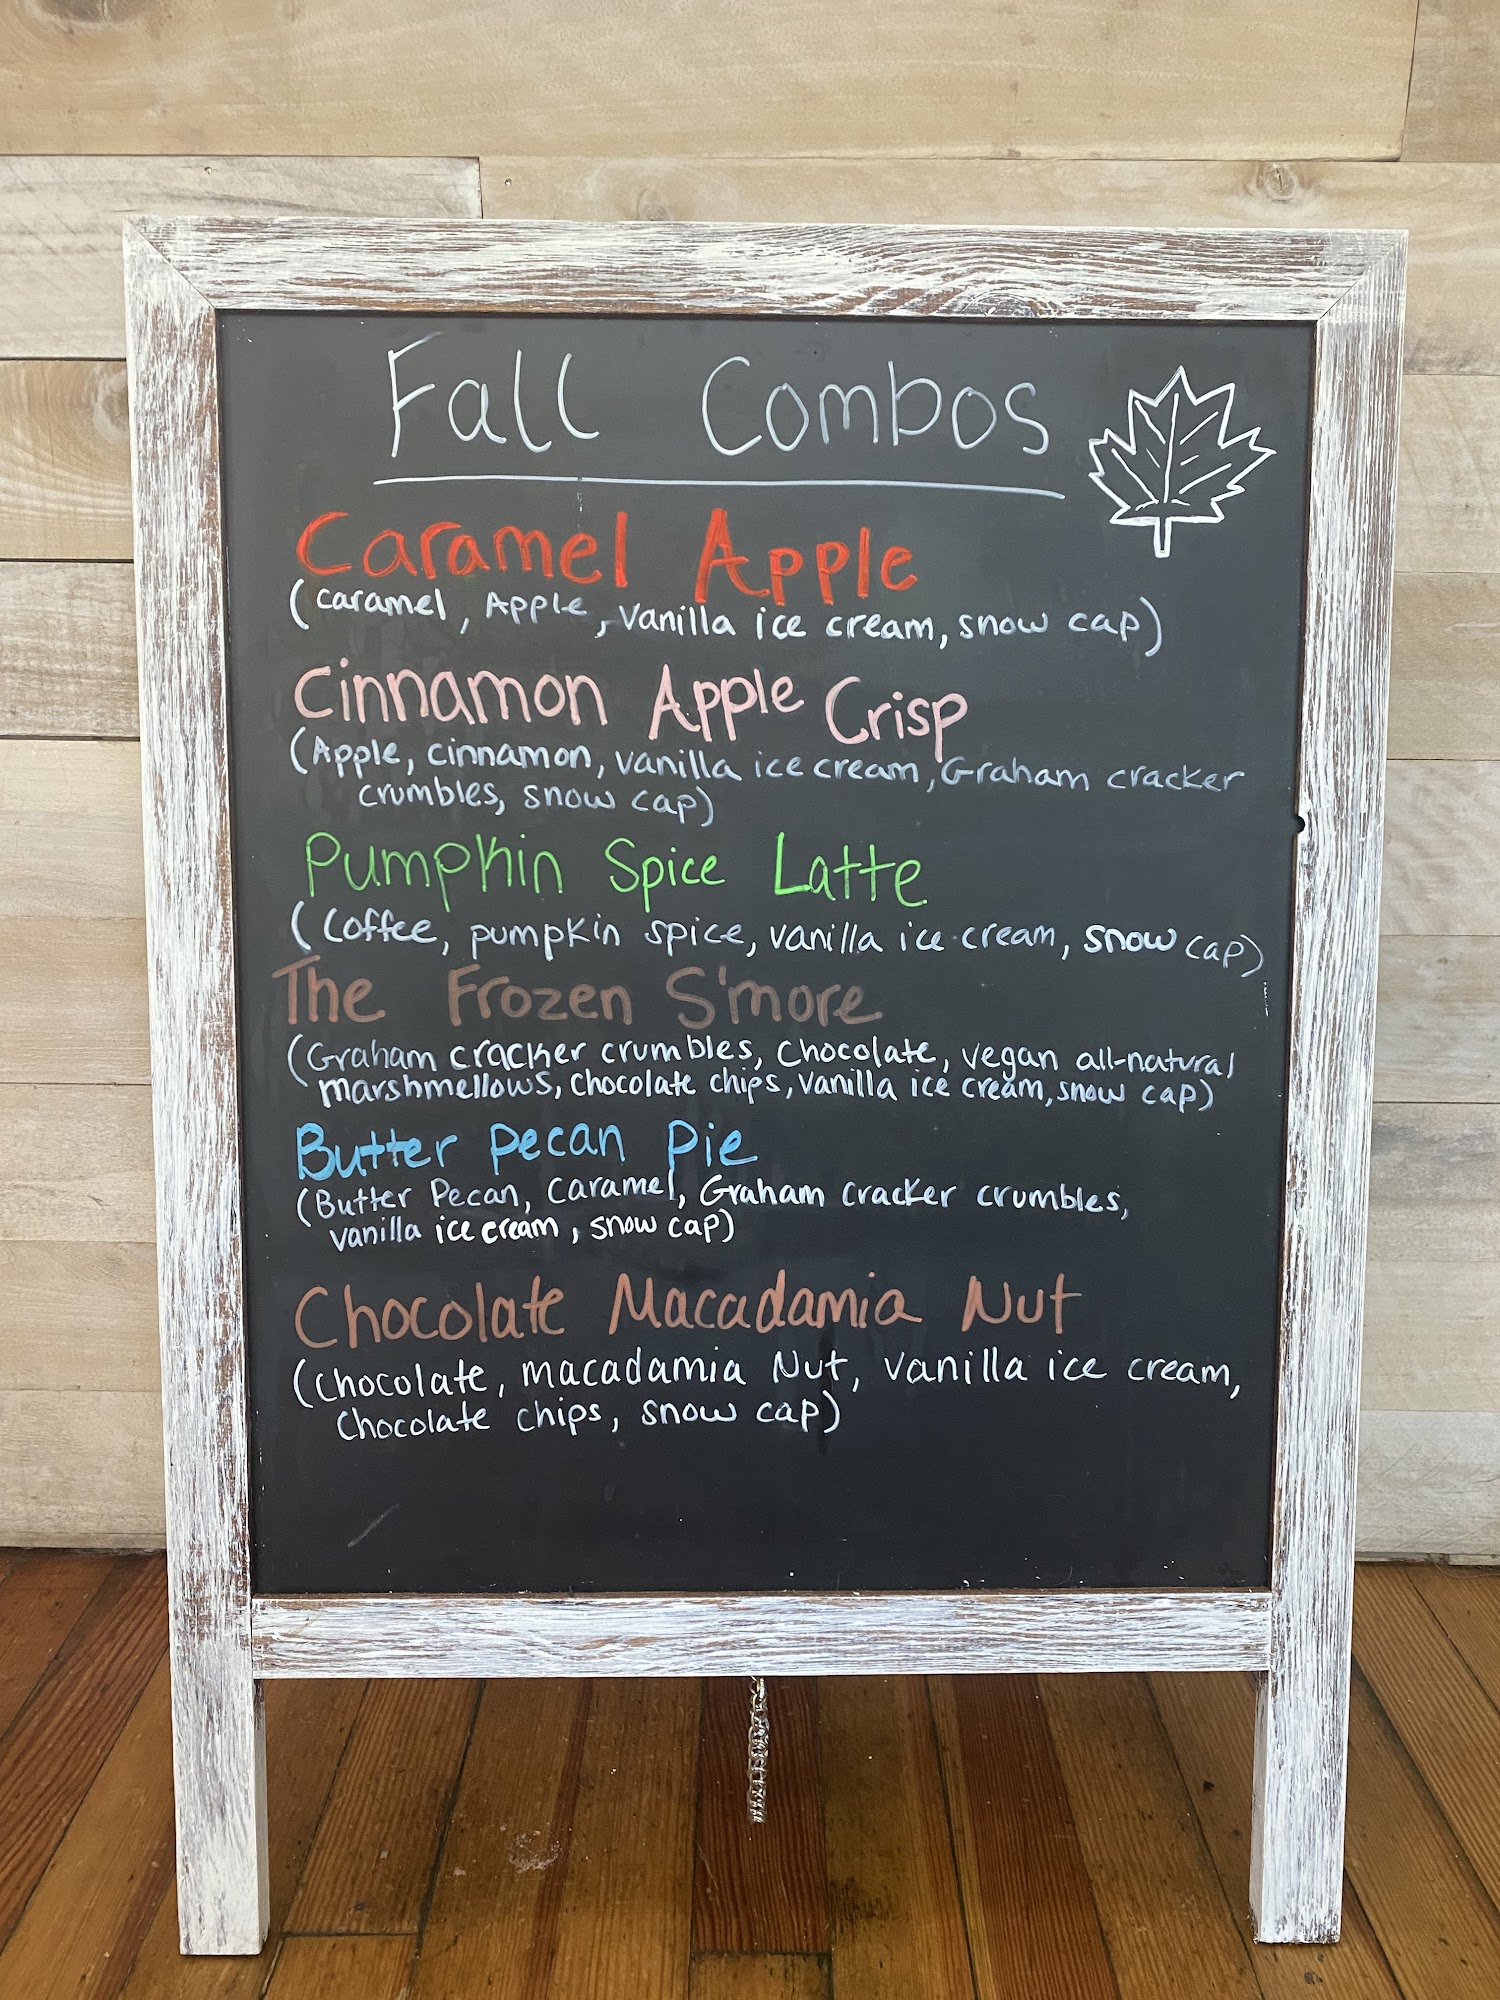 Fall Combos
Caramel Apple
(caramel, Apple, vanilla ice cream, snow cap)
Cinnamon Apple Crisp
(Apple, cinnamon, vanilla ice cream, Graham cracker
crumbles, snow cap)
Pumpkin Spice Latte
(Coffee, pumpkin spice, vanilla ice cream, snow cap)
The Frozen S'more
(Graham cracker crumbles, chocolate, vegan all-natural
marshmellows, chocolate chips, vanilla ice cream, snow cap)
Butter Pecan Pie
(Butter Pecan, Caramel, Graham cracker crumbles,
vanilla ice cream, snow cap)
Chocolate Macadamia Nut
(chocolate, macadamia Nut, vanilla ice cream,
chocolate chips, snow cap)